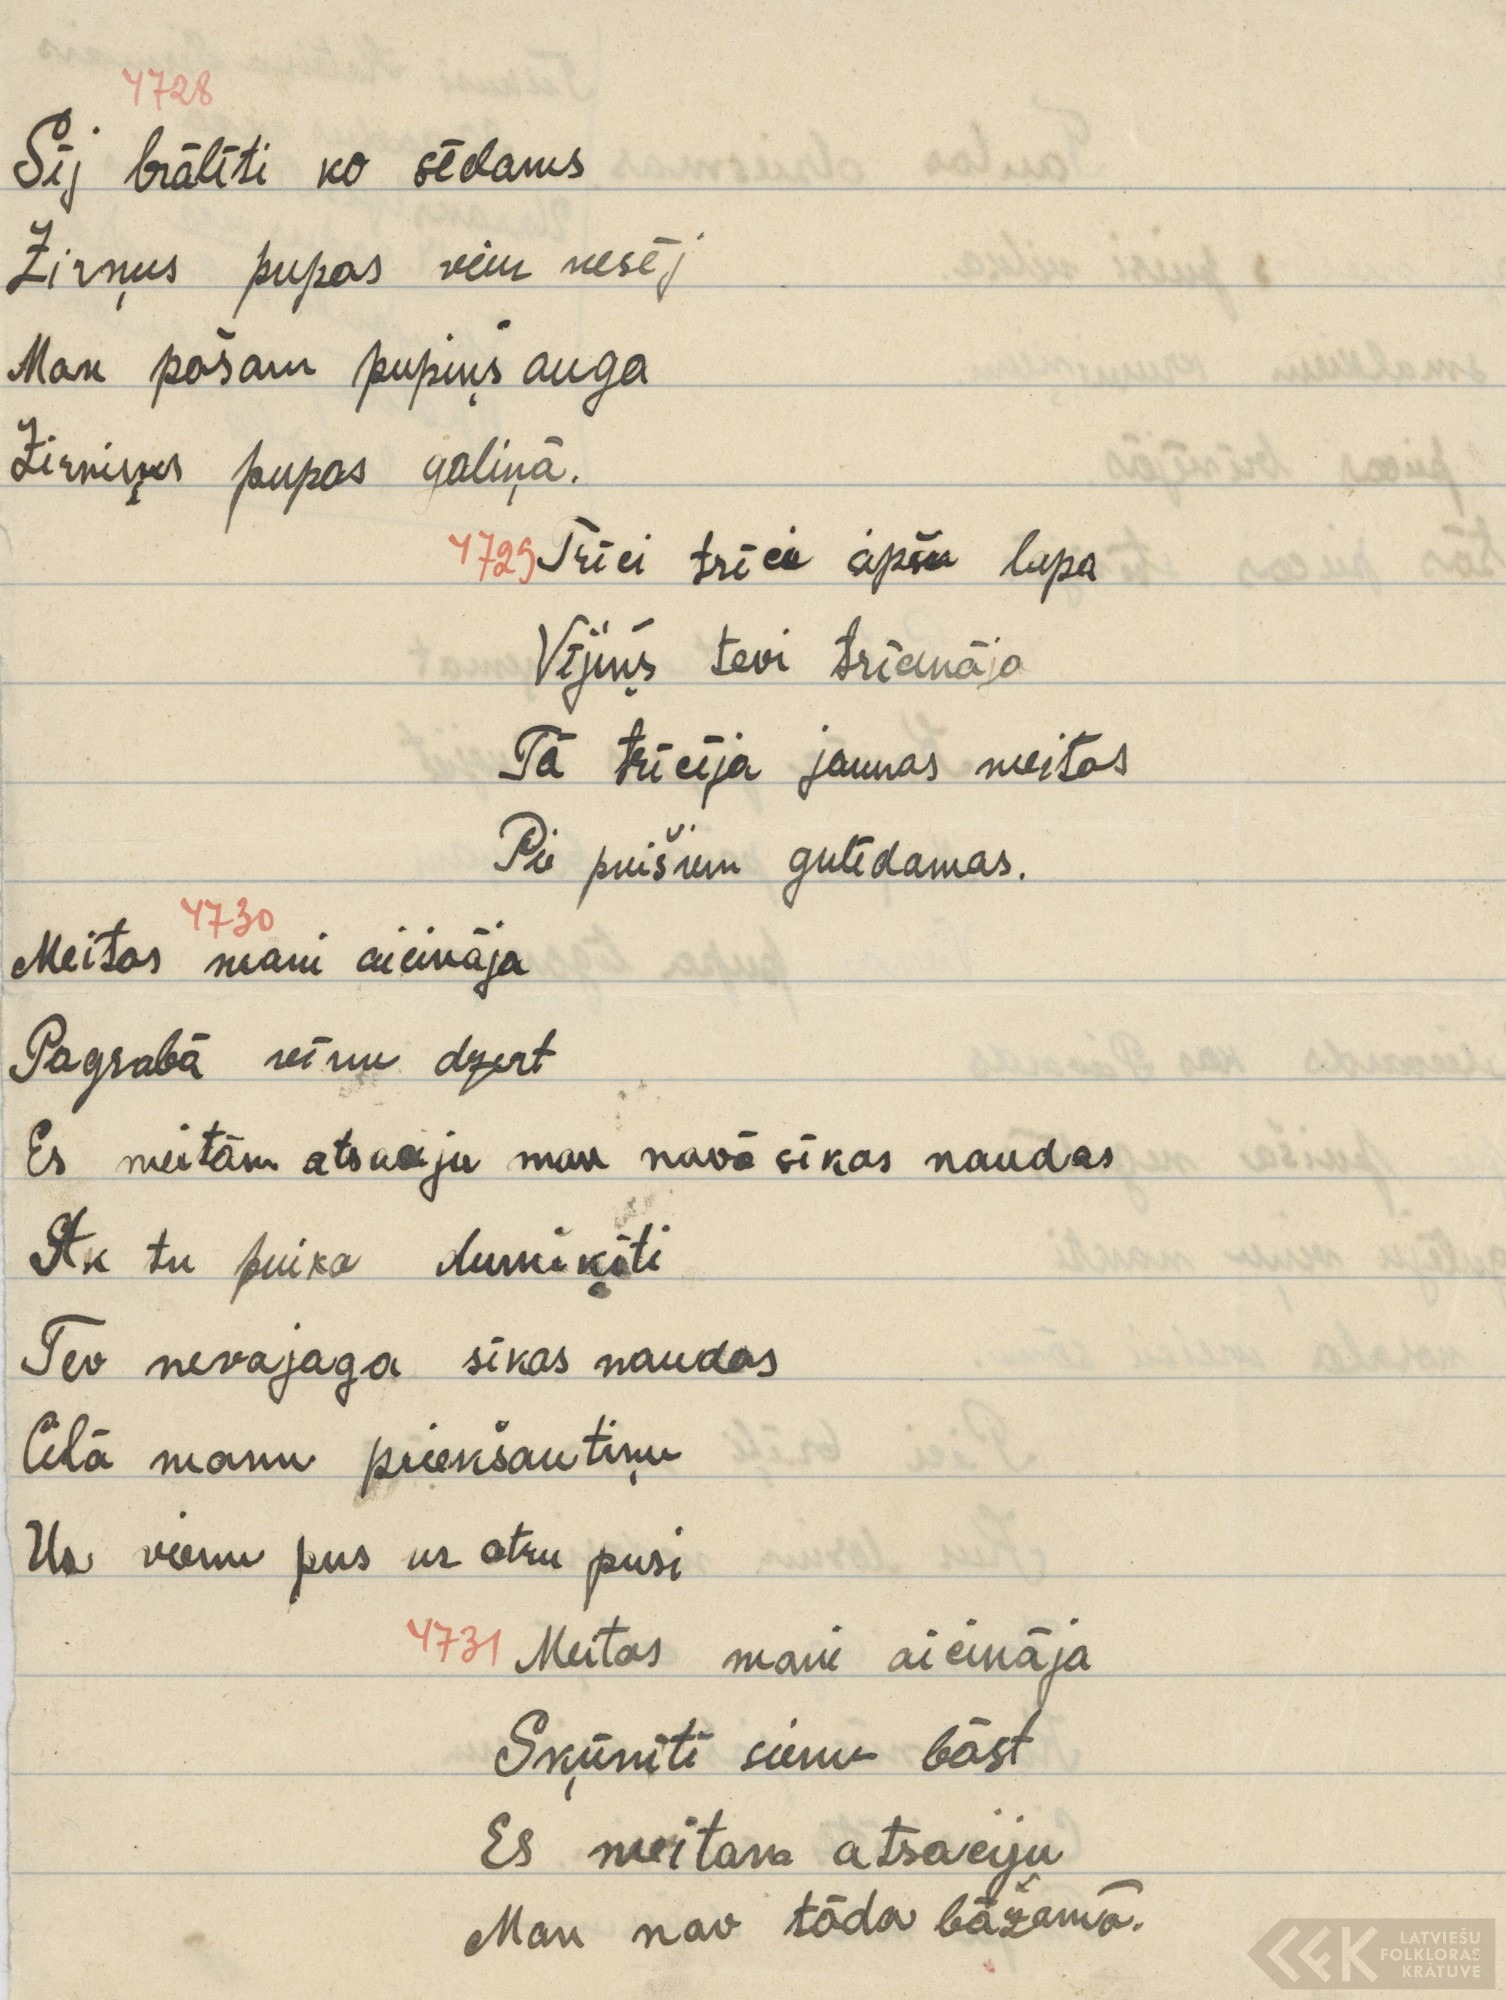 4728
Sēj brālīti ko sēdams
Zirņus pupas vien nesēj
Man pašam pupiņš auga
Zirniņus pupas galiņā.
4729 Trīci trīci apšu lapa
Vējiņš tevi trīcināja
Tā trīcēja jaunas meitas
Pie puišiem gulēdamas.
4730
Meitas mani aicināja
Pagrabā vīnu dzert
Es meitām atsacīju man navā sīkas naudas
Ak tu puika dumiķīti
Tev nevajaga sīkas naudas
Cilā manu priekšautiņu
Uz vienu pus uz otru pusi
4731 Meitas mani aicināja
Sķūnītī sienu bāst
Es meitam atsacīju
Man nav tāda bāžamā.
LATVIEŠU
FOLKLORAS
KRĀTUVE